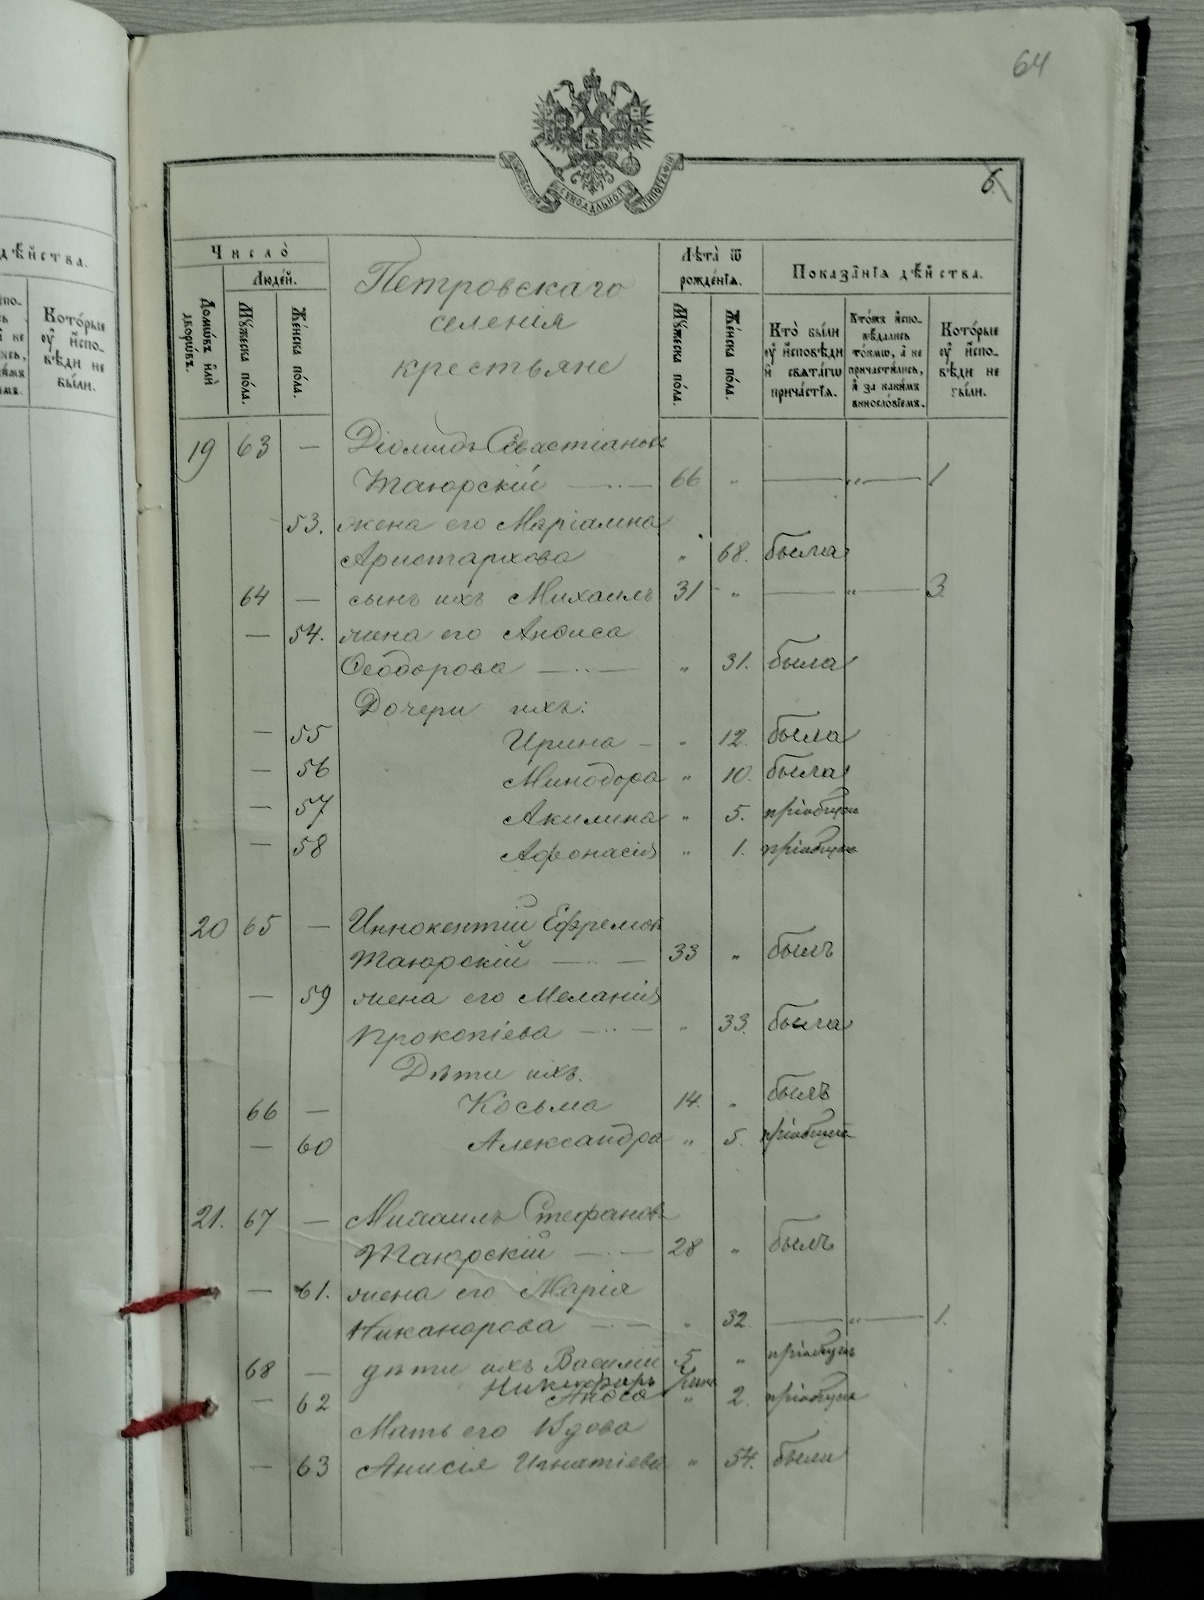 64
МОСКОВСКОЙ СѴНОДАЛЬНОЙ ТИПОГРАФІИ
6
Число̀
Людей.
Домѡвъ илѝ дворѡвъ.
Мꙋжеска пола.
Женска пола.
Петровскаго
селенія
крестьяне
Лѣта̀ ѿ рожденїѧ.
Мꙋжеска пола.
Женска пола.
Показанїѧ дѣйства.
Кто̀ были ᲂу҆ исповѣди и свѧтагѡ причастїѧ.
Кто́жъ исповѣдались то́кмѡ, а не причастились, и за какимъ винословїемъ.
Которые ᲂу҆ исповѣди не были.
19 63 — Діомидъ Севастіановъ
Таюрскій — 66 „ — „ — 1
53. жена его Маріамна
Аристархова „ 68. была
64 — сынъ ихъ Михаилъ 31 „ — „ — 3
— 54. жена его Анѳиса
Ѳеодорова — „ 31. была
Дочери ихъ:
— 55 Ирина — „ 12. была
— 56 Минодора „ 10. была
— 57 Акилина „ 5. пріобщен
— 58 Афонасія „ 1. пріобщен
20 65 — Иннокентій Ефремовъ
Таюрскій — 33 „ былъ
— 59 жена его Меланія
Прокопіева — „ 33. была
Дѣти ихъ.
66 — Косьма 14. „ былъ
— 60 Александра „ 5. пріобщена
21. 67 — Михаилъ Стефановъ
Таюрскій — 28 „ былъ
— 61. жена его Марія
Никанорова — „ 32. — „ — 1.
68 — дѣти ихъ Василій 5 „ пріобщенъ
Никифоръ
— 62 „ 2. пріобщена
Мать его вдова
— 63 Анисія Игнатіева „ 54. была